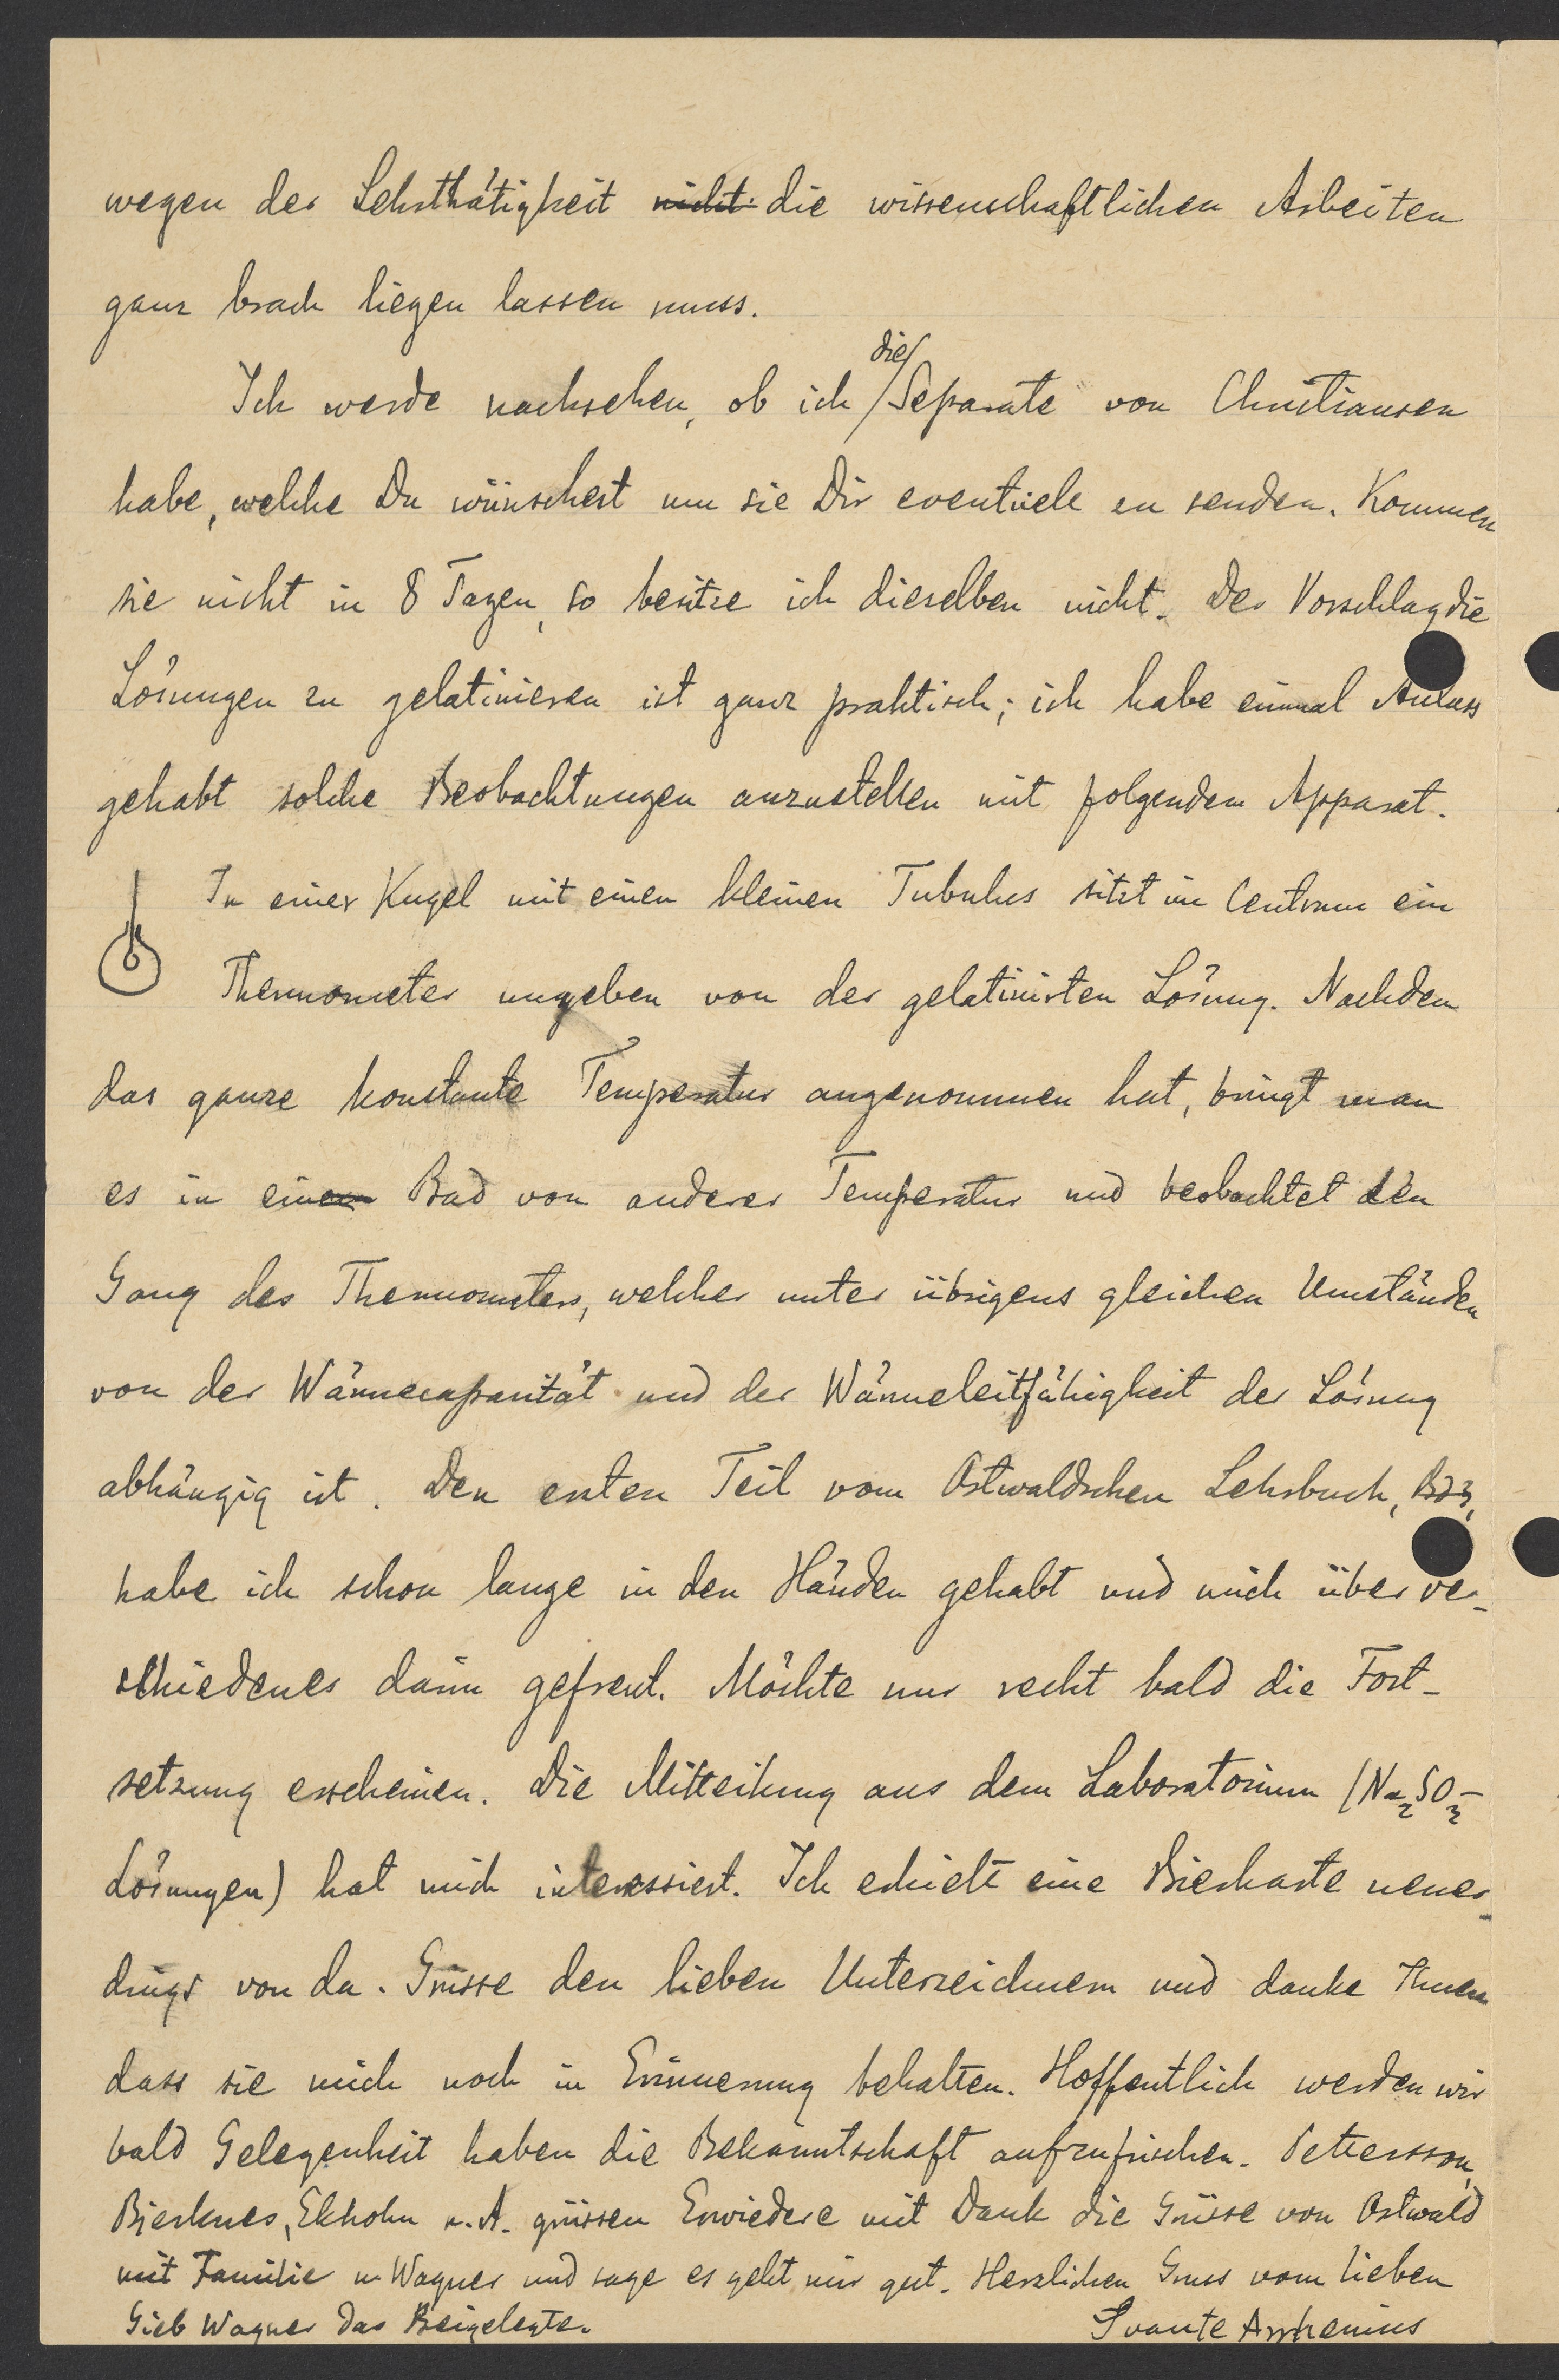 wegen der Lehrthätigkeit nicht die wissenschaftlichen Arbeiten
ganz brach liegen lassen muss.
Ich werde nachsehen, ob ich die Separate von Christiansen
habe, welche Du wünschest um sie Dir eventuele zu senden. Kommen
sie nicht in 8 Tagen, so besitze ich dieselben nicht. Der Vorschlag die
Lösungen zu gelatinieren ist ganz praktisch; ich habe einmal Anlass
gehabt solche Beobachtungen anzustellen mit folgendem Apparat.
In einer Kugel mit einen kleinen Tubulus sitzt im Centrum ein
Thermometer umgeben von der gelatinirten Lösung. Nachdem
das ganze konstante Temperatur angenommen hat, bringt man
es in einem Bad von anderer Temperatur und beobachtet den
Gang des Thermometers, welcher unter übrigens gleichen Umständen
von der Wärmecapacität und der Wärmeleitfähigkeit der Lösung
abhängig ist. Den ersten Teil vom Ostwaldschen Lehrbuch, Bd 3,
habe ich schon lange in den Händen gehabt und mich über ver-
schiedenes darin gefreut. Möchte nur recht bald die Fort-
setzung erscheinen. Die Mitteilung aus dem Laboratorium (Na2SO3-
Lösungen) hat mich interessiert. Ich erhielt eine Bierkarte neuer-
dings von da. Grüsse den lieben Unterzeichnern und danke Ihnen
dass sie mich noch in Erinnerung behalten. Hoffentlich werden wir
bald Gelegenheit haben die Bekanntschaft aufzufrischen. Pettersson,
Bjerknes, Ekholm u. A. grüssen Erwiedere mit Dank die Grüsse von Ostwald
mit Familie u Wagner und sage es geht mir gut. Herzlichen Gruss vom lieben
Gieb Wagner das Beigelegte. Svante Arrhenius